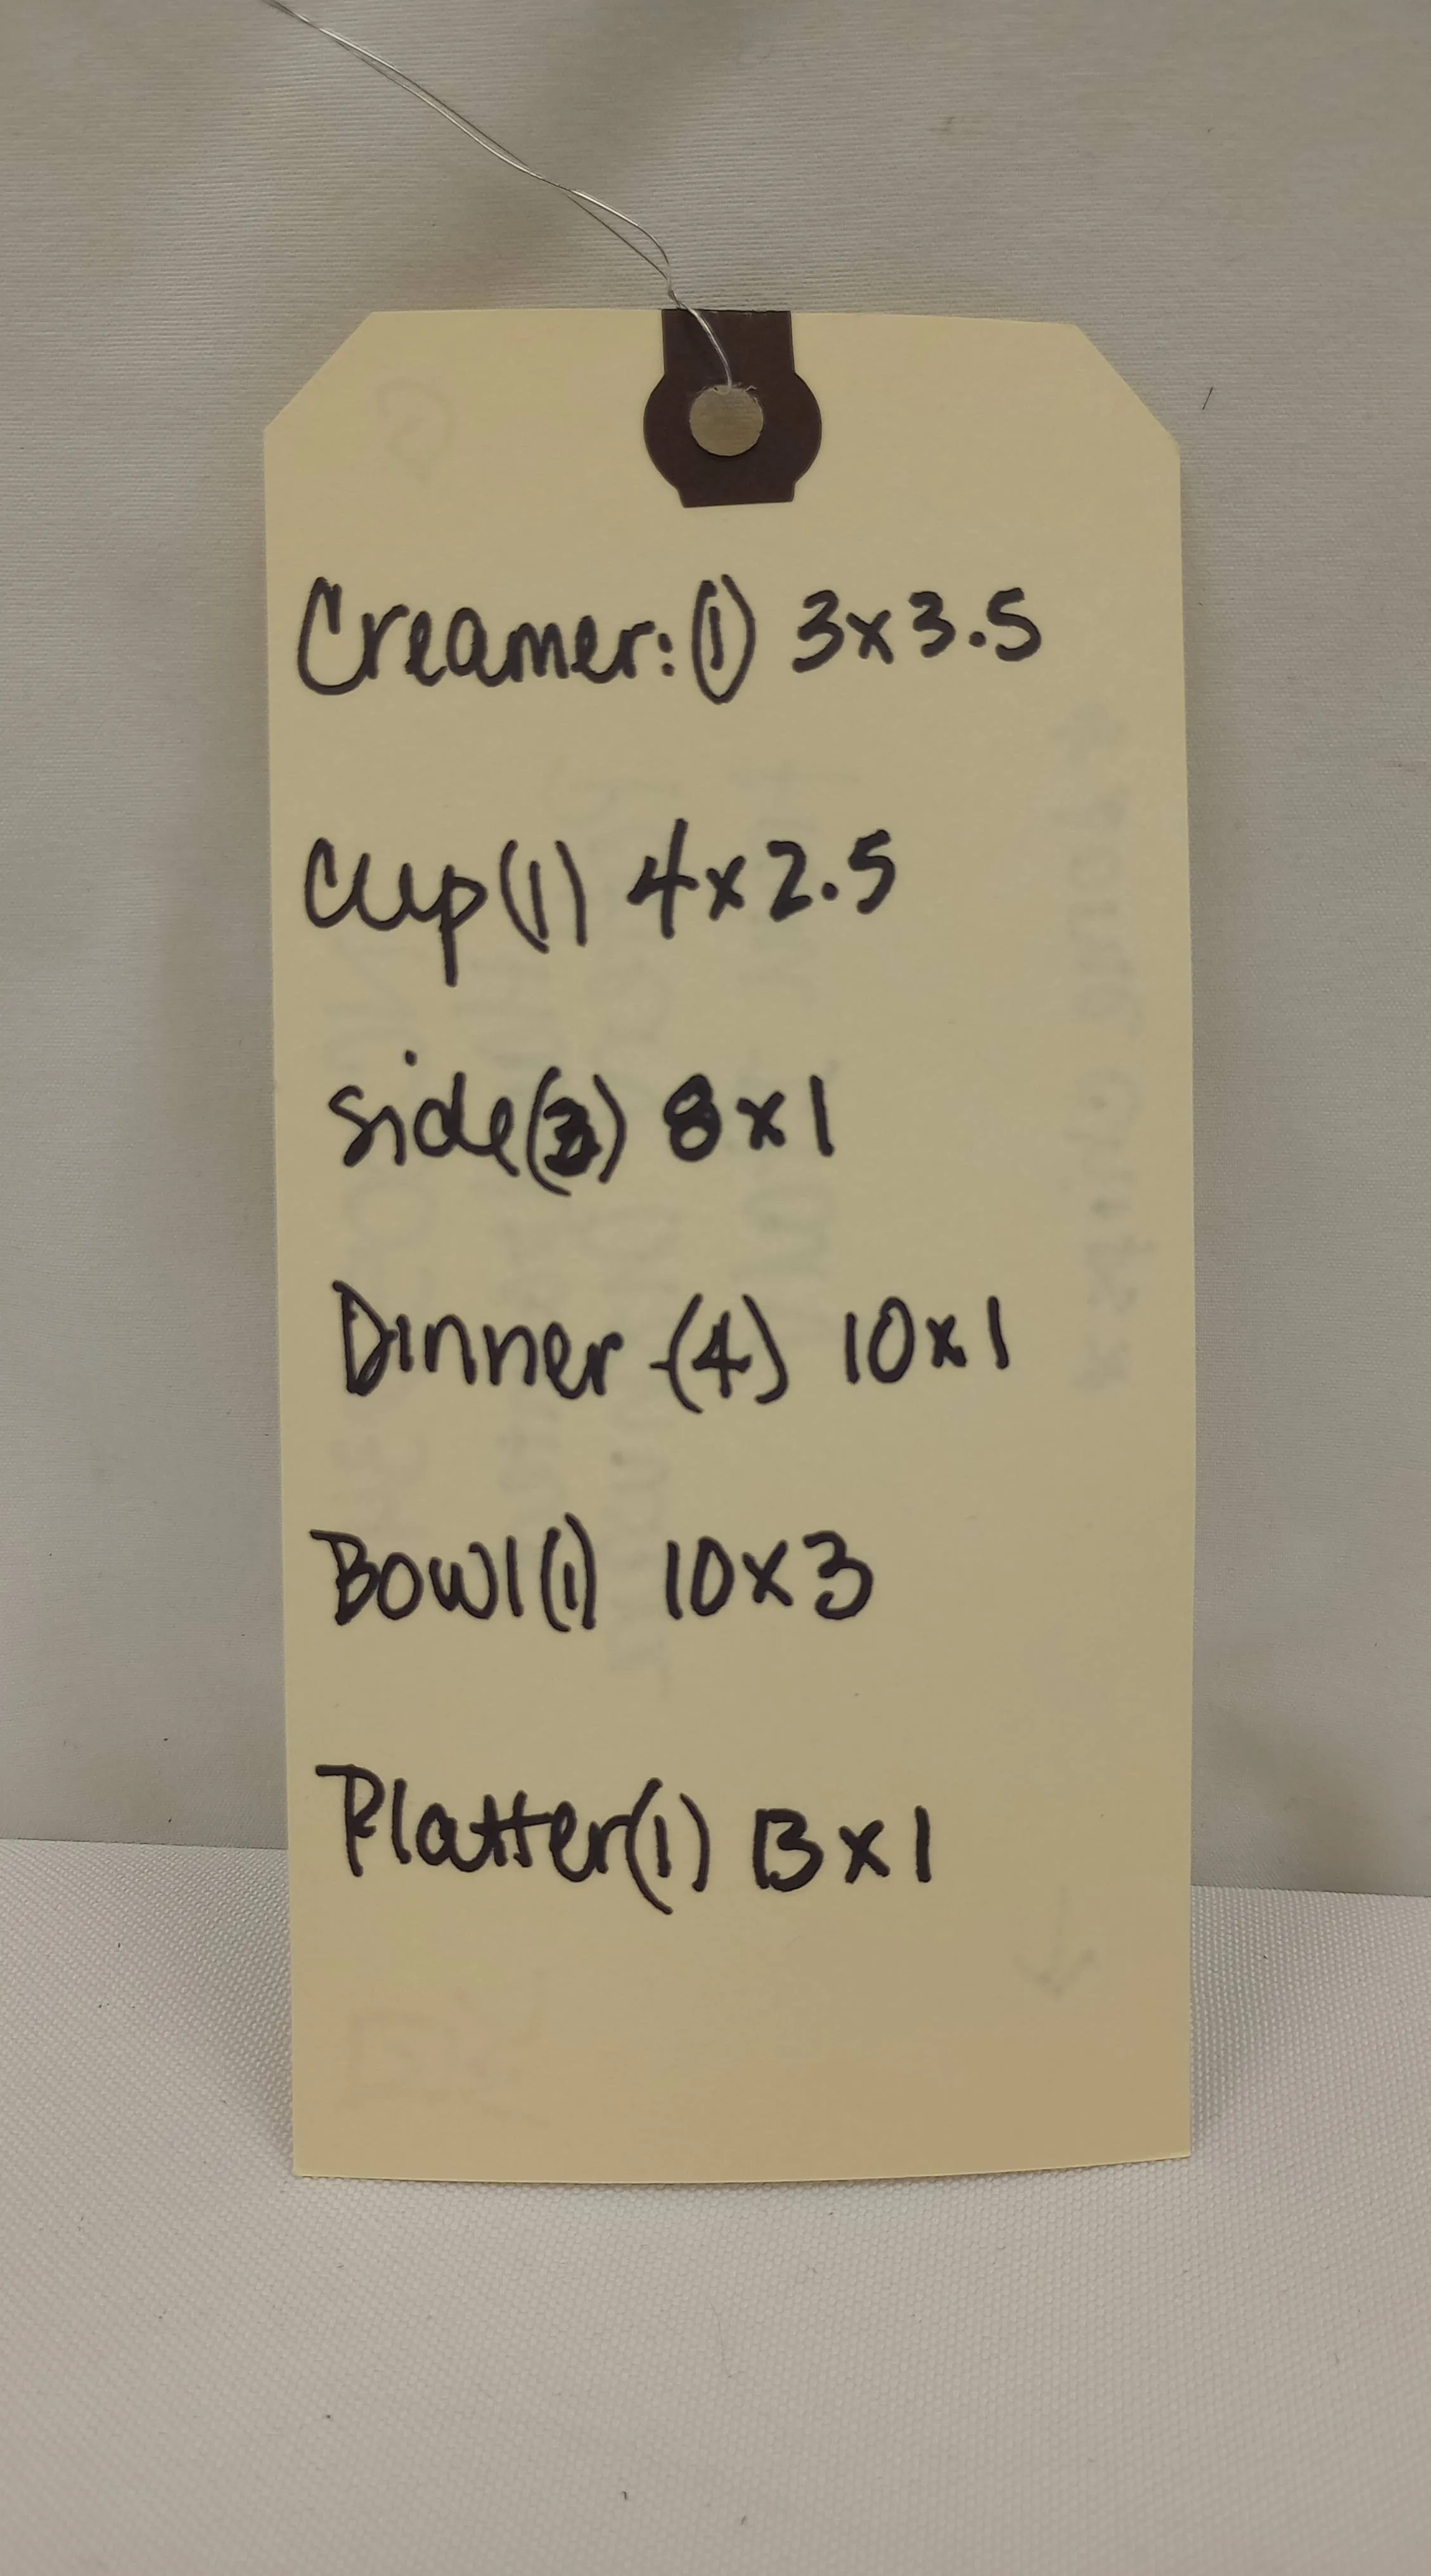 Creamer: (1) 3x3.5
Cup (1) 4x2.5
Side ( ) 8x1
Dinner - (4) 10x1
Bowl (1) 10x3
Platter (1) 13x1